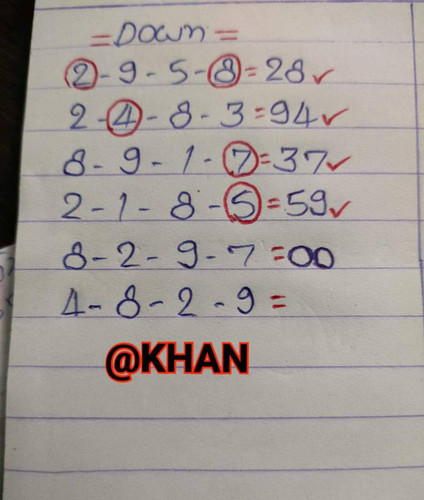 =Down=
2-9-5-8=28✓
2-4-8-3=94✓
8-9-1-7=37✓
2-1-8-5=59✓
8-2-9-7=00
4-8-2-9=
@KHAN